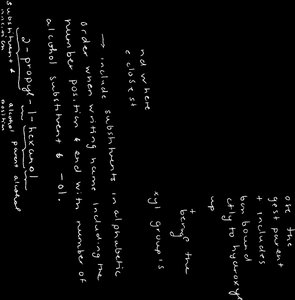 ose the
gest parent
t includes
bon bound
ctly to hydroxyl
up
being the
xyl group is
nd where
e closest
→ include substituents in alphabetic
order when writing name including the
number position & end with number of
alcohol substituent & -ol.
2-propyl-1-hexanol
substituent & alcohol parent alcohol
location position